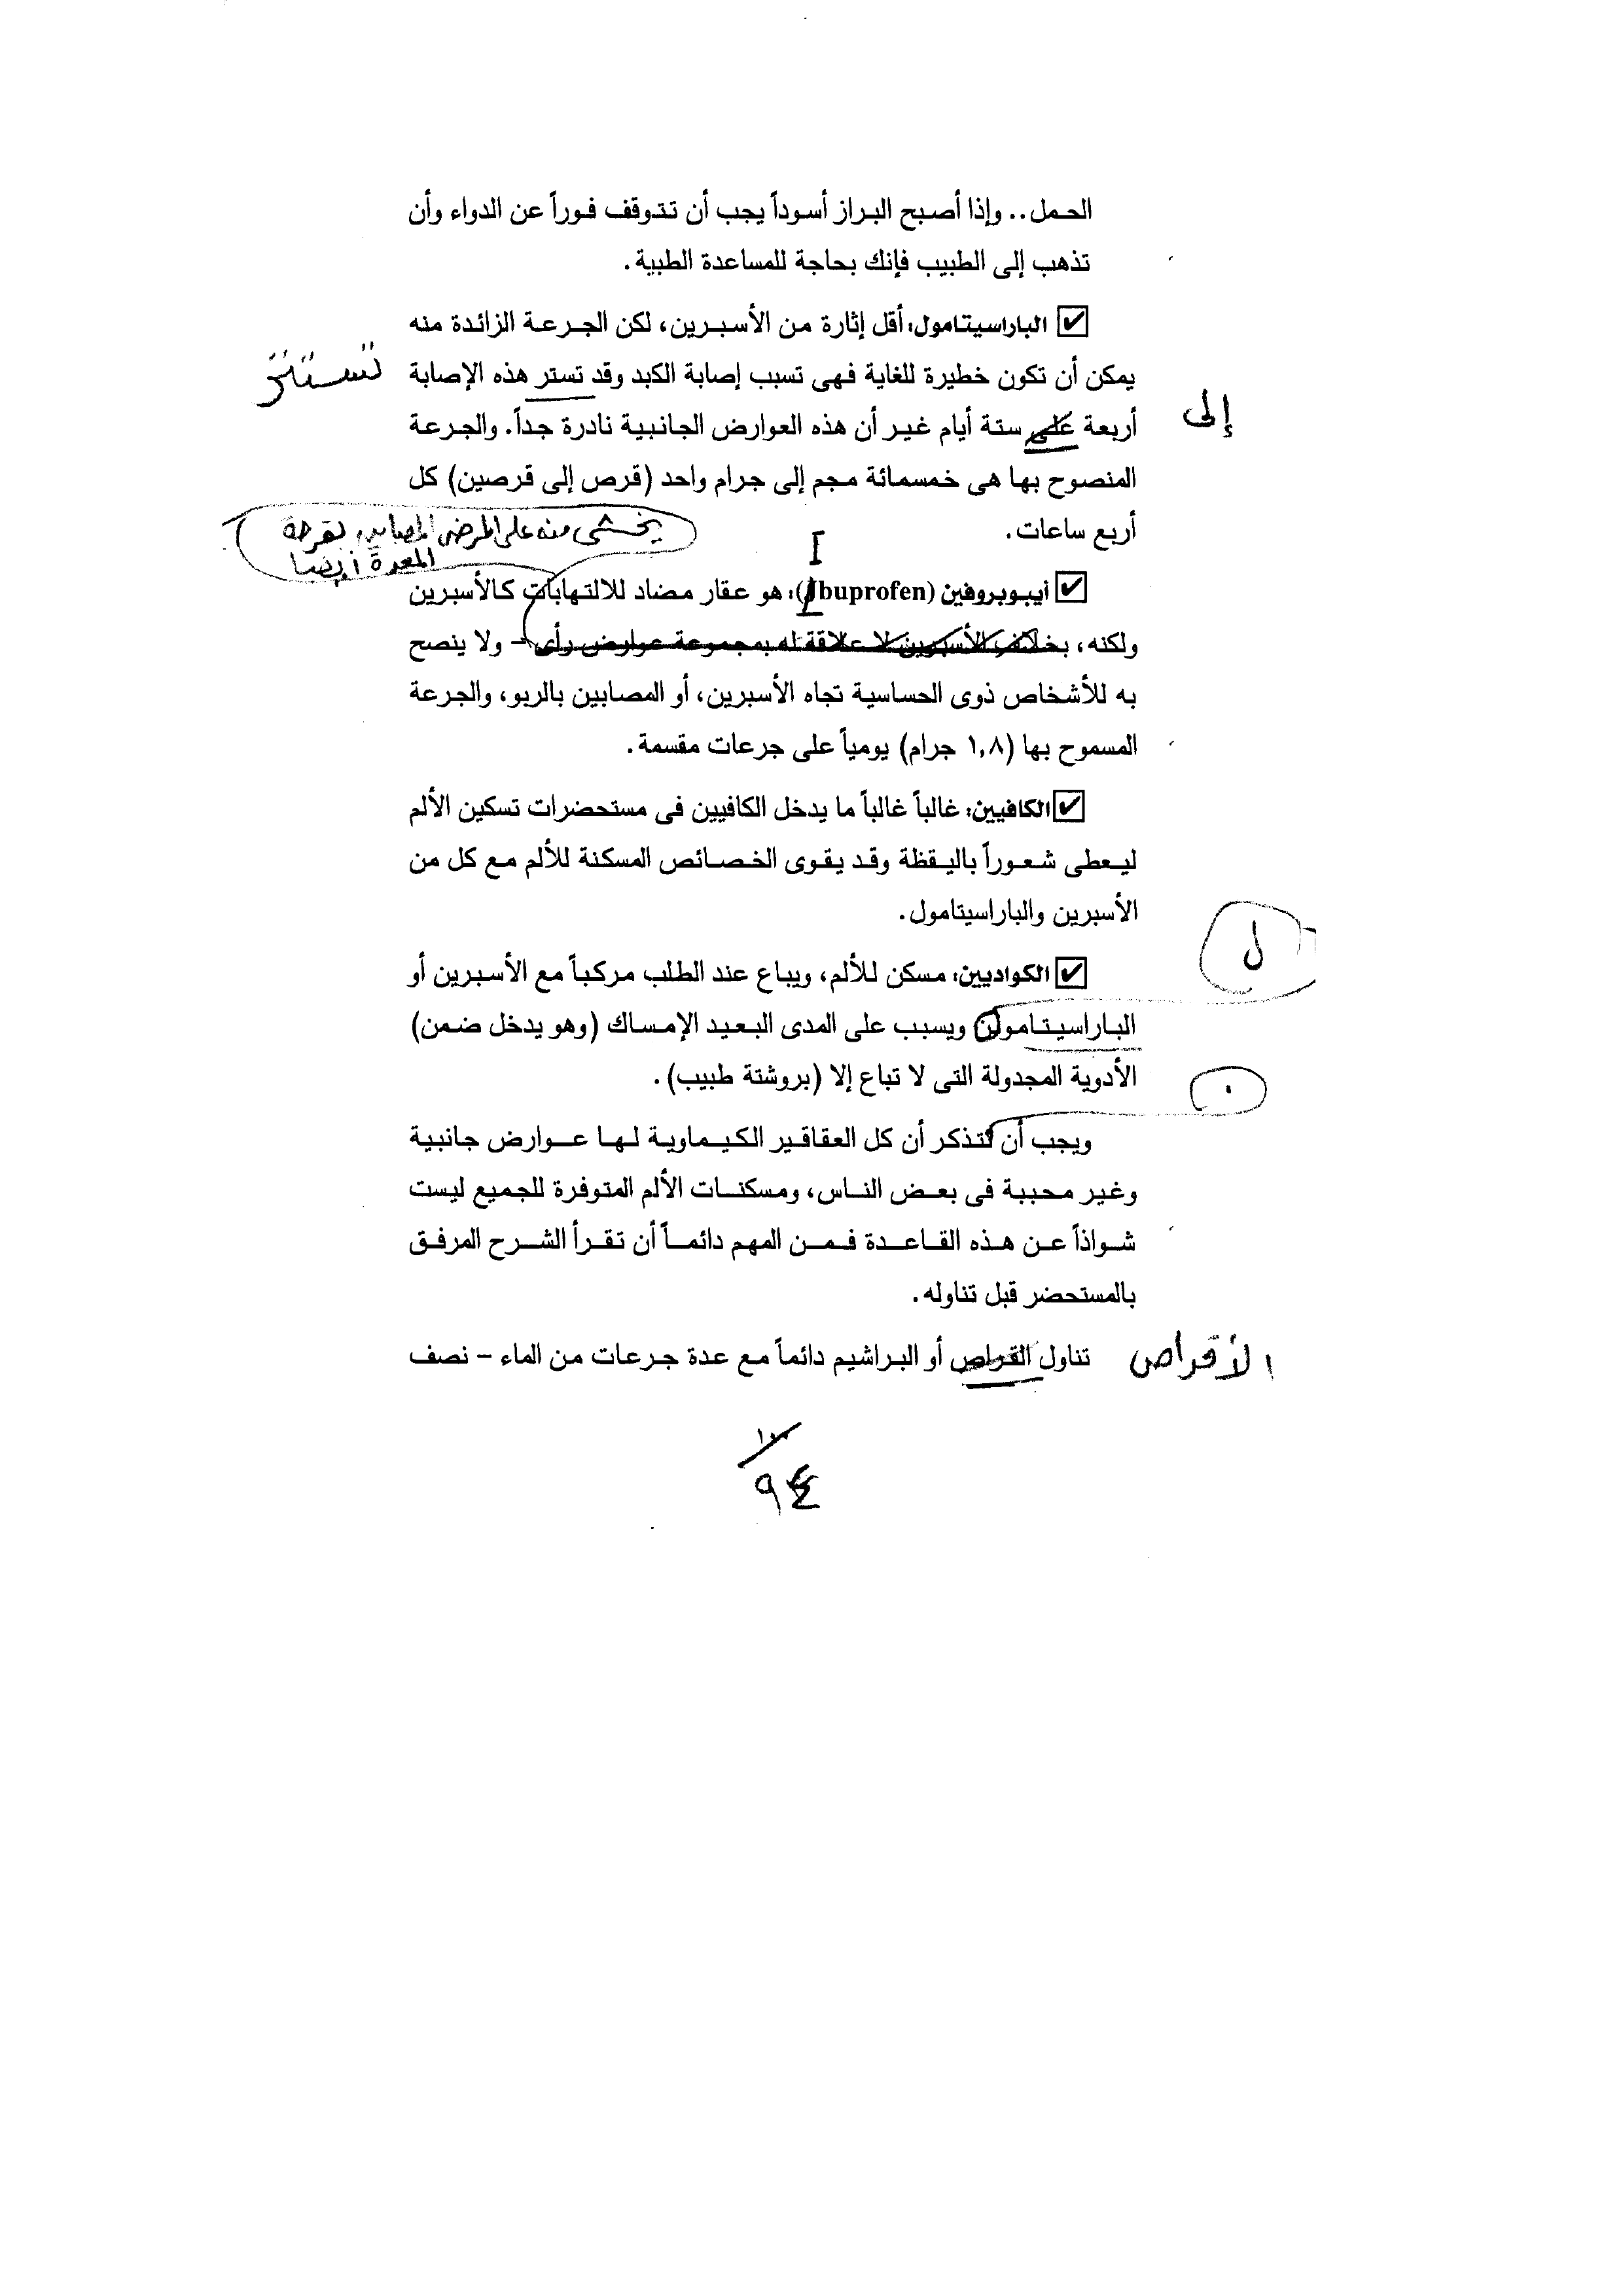 الحمل.. وإذا أصبح البراز أسوداً يجب أن تتوقف فوراً عن الدواء وأن
تذهب إلى الطبيب فإنك بحاجة للمساعدة الطبية.
☑ الباراسيتامول: أقل إثارة من الأسبرين، لكن الجرعة الزائدة منه
يمكن أن تكون خطيرة للغاية فهى تسبب إصابة الكبد وقد تستر هذه الإصابة
تستتر
أربعة على ستة أيام غير أن هذه العوارض الجانبية نادرة جداً. والجرعة
إلى
المنصوح بها هى خمسمائة مجم إلى جرام واحد (قرص إلى قرصين) كل
أربع ساعات.
يخشى منه على المرضى المصابين بقرحة
المعدة أيضا
I
☑ أيبوبروفين (Ibuprofen): هو عقار مضاد للالتهابات كالأسبرين
ولكنه، بخلاف الأسبرين لا علاقة له بمجموعة عوارض رأى - ولا ينصح
به للأشخاص ذوى الحساسية تجاه الأسبرين، أو المصابين بالربو، والجرعة
المسموح بها (١,٨ جرام) يومياً على جرعات مقسمة.
☑ الكافيين: غالباً غالباً ما يدخل الكافيين فى مستحضرات تسكين الألم
ليعطى شعوراً باليقظة وقد يقوى الخصائص المسكنة للألم مع كل من
الأسبرين والباراسيتامول.
ل
☑ الكواديين: مسكن للألم، ويباع عند الطلب مركباً مع الأسبرين أو
الباراسيتامون ويسبب على المدى البعيد الإمساك (وهو يدخل ضمن)
الأدوية المجدولة التى لا تباع إلا (بروشتة طبيب).
ويجب أن تتذكر أن كل العقاقير الكيماوية لها عوارض جانبية
وغير محببة فى بعض الناس، ومسكنات الألم المتوفرة للجميع ليست
شواذاً عن هذه القاعدة فمن المهم دائماً أن تقرأ الشرح المرفق
بالمستحضر قبل تناوله.
تناول القراص أو البراشيم دائماً مع عدة جرعات من الماء - نصف
الأقراص
٩٤